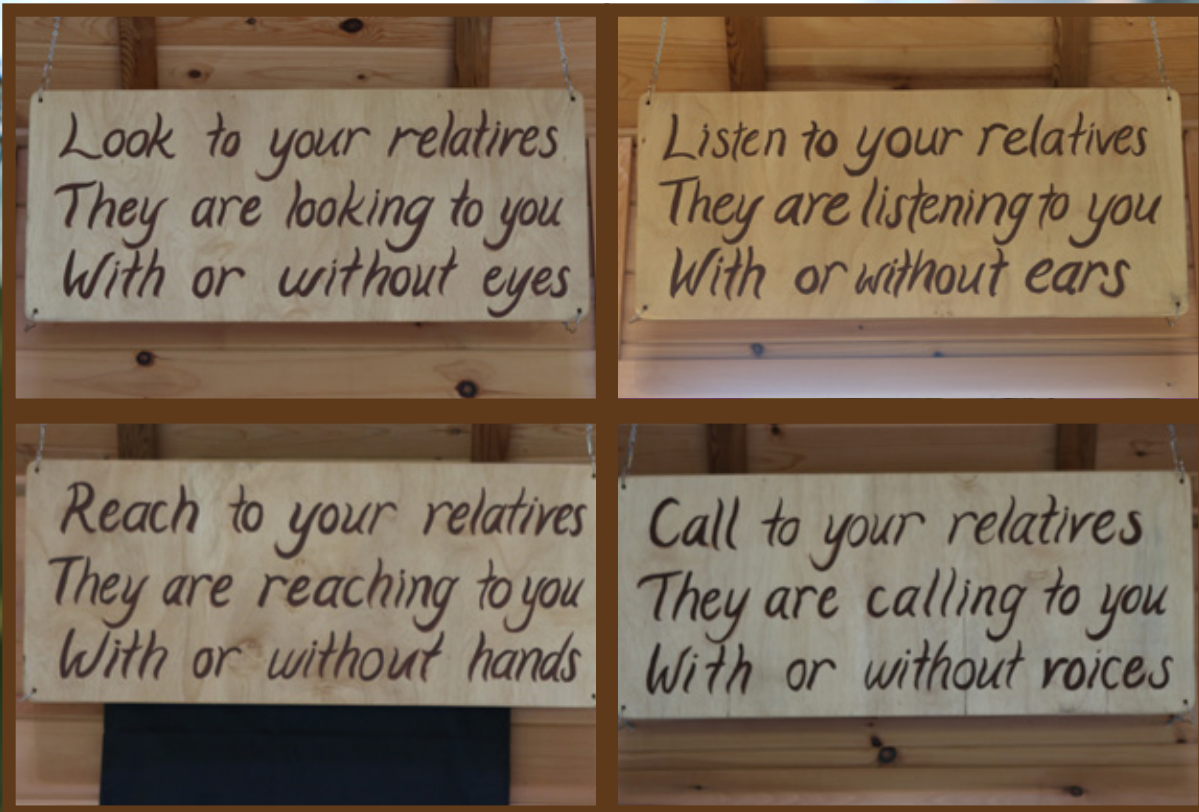 Look to your relatives
They are looking to you
With or without eyes
Listen to your relatives
They are listening to you
With or without ears
Reach to your relatives
They are reaching to you
With or without hands
Call to your relatives
They are calling to you
With or without voices